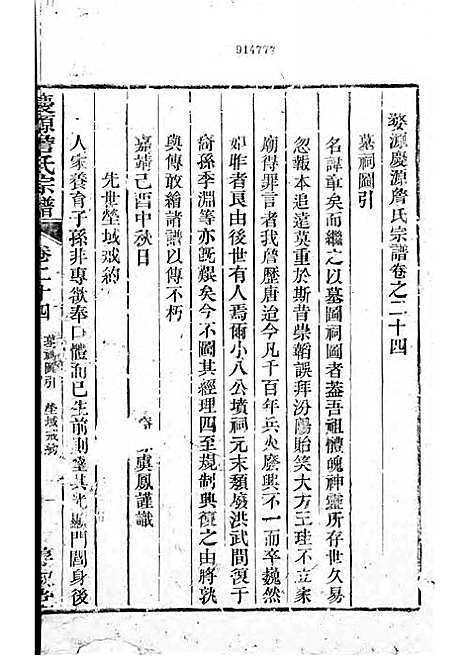 914777
婺源慶源詹氏宗譜卷之二十四
墓祠圖引
名諱章矣而繼之以墓圖祠圖者葢吾祖體魄神靈所存世久易
忽報本追遠莫重於斯昔崇韜誤拜汾陽貽笑大方王珪不立家
廟得罪言者我詹歷唐迨今凡千百年兵火廢興不一而卒巍然
如昨者良由後世有人焉爾小八公墳祠元末頽廢洪武間復于
裔孫季淵等亦既艱矣今不圖其經理四至規制興復之由將孰
與傳敢繪諸譜以傳不朽
嘉靖己酉中秋日
孫虞鳳謹識
先世塋域戒約
人家養育子孫非專欲奉口體於已生前則達其光顯門閭身後
慶源詹氏宗譜
卷二十四
墓祠圖引 塋域戒約
一